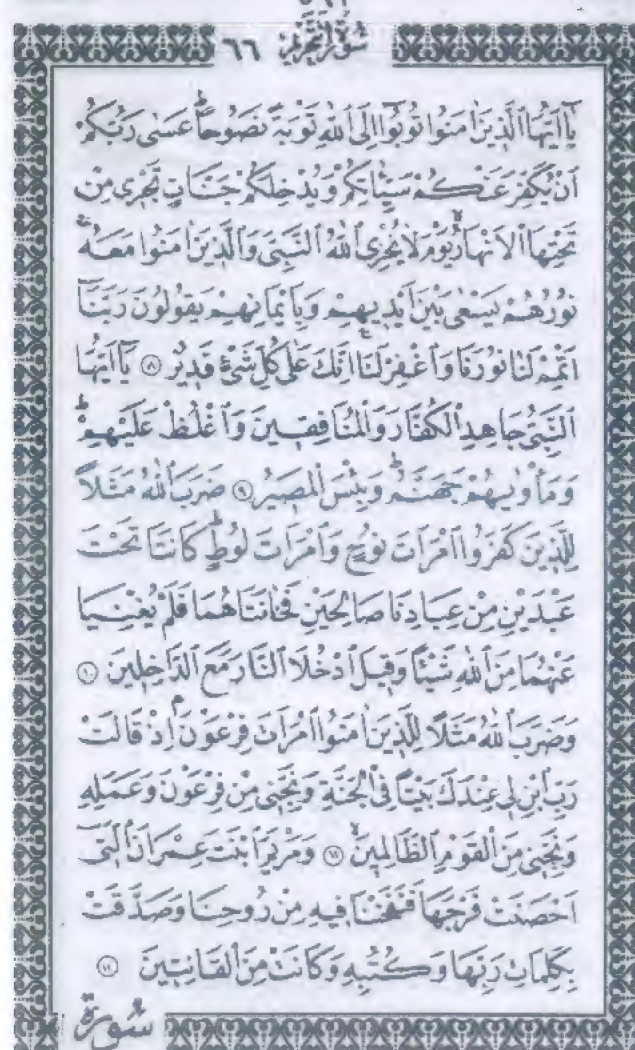 سُورَةُ التَّحْرِيمِ ٦٦
يَٓا اَيُّهَا الَّذٖينَ اٰمَنُوا تُوبُٓوا اِلَى اللّٰهِ تَوْبَةً نَصُوحاًؕ عَسٰى رَبُّكُمْ
اَنْ يُكَفِّرَ عَنْكُمْ سَيِّـَٔاتِكُمْ وَيُدْخِلَكُمْ جَنَّاتٍ تَجْرٖى مِنْ
تَحْتِهَا الْاَنْهَارُۙ يَوْمَ لَا يُخْزِى اللّٰهُ النَّبِىَّ وَالَّذٖينَ اٰمَنُوا مَعَهُۚ
نُورُهُمْ يَسْعٰى بَيْنَ اَيْدٖيهِمْ وَبِاَيْمَانِهِمْ يَقُولُونَ رَبَّنَٓا
اَتْمِمْ لَنَا نُورَنَا وَاغْفِرْ لَنَاۚ اِنَّكَ عَلٰى كُلِّ شَىْءٍ قَدٖيرٌ ٨ يَٓا اَيُّهَا
النَّبِىُّ جَاهِدِ الْكُفَّارَ وَالْمُنَافِقٖينَ وَاغْلُظْ عَلَيْهِمْؕ
وَمَأْوٰيهُمْ جَهَنَّمُؕ وَبِئْسَ الْمَصٖيرُ ٩ ضَرَبَ اللّٰهُ مَثَلاً
لِلَّذٖينَ كَفَرُوا امْرَاَتَ نُوحٍ وَامْرَاَتَ لُوطٍؕ كَانَتَا تَحْتَ
عَبْدَيْنِ مِنْ عِبَادِنَا صَالِحَيْنِ فَخَانَتَاهُمَا فَلَمْ يُغْنِيَا
عَنْهُمَا مِنَ اللّٰهِ شَيْـًٔا وَقٖيلَ ادْخُلَا النَّارَ مَعَ الدَّاخِلٖينَ ١٠
وَضَرَبَ اللّٰهُ مَثَلًا لِلَّذٖينَ اٰمَنُوا امْرَاَتَ فِرْعَوْنَۘ اِذْ قَالَتْ
رَبِّ ابْنِ لٖى عِنْدَكَ بَيْتًا فِى الْجَنَّةِ وَنَجِّنٖى مِنْ فِرْعَوْنَ وَعَمَلِهٖ
وَنَجِّنٖى مِنَ الْقَوْمِ الظَّالِمٖينَۙ ١١ وَمَرْيَمَ ابْنَتَ عِمْرَانَ الَّتٖٓى
اَحْصَنَتْ فَرْجَهَا فَنَفَخْنَا فٖيهِ مِنْ رُوحِنَا وَصَدَّقَتْ
بِكَلِمَاتِ رَبِّهَا وَكُتُبِهٖ وَكَانَتْ مِنَ الْقَانِتٖينَ ١٢
سُورَةُ